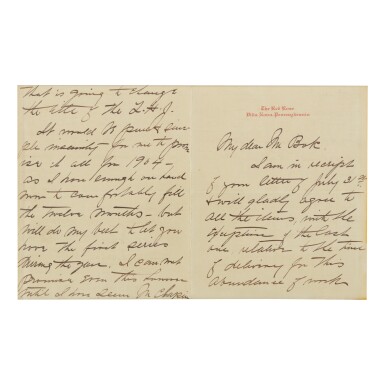 The Red Rose
Villa Nova, Pennsylvania
My dear Mr Bok.
I am in receipt
of your letter of July 31st
& will gladly agree to
all the items, with the
exception of the last
one, relative to the time
of delivery for this
abundance of work
that is going to change
the of the L.H.J.
It would be
for me to
it all for 1904 —
as I have enough on hand
now to comfortably fill
the twelve months — but
will do my best to let you
have the first series
during the year. I can not
promise even this however
until I have seen Mr